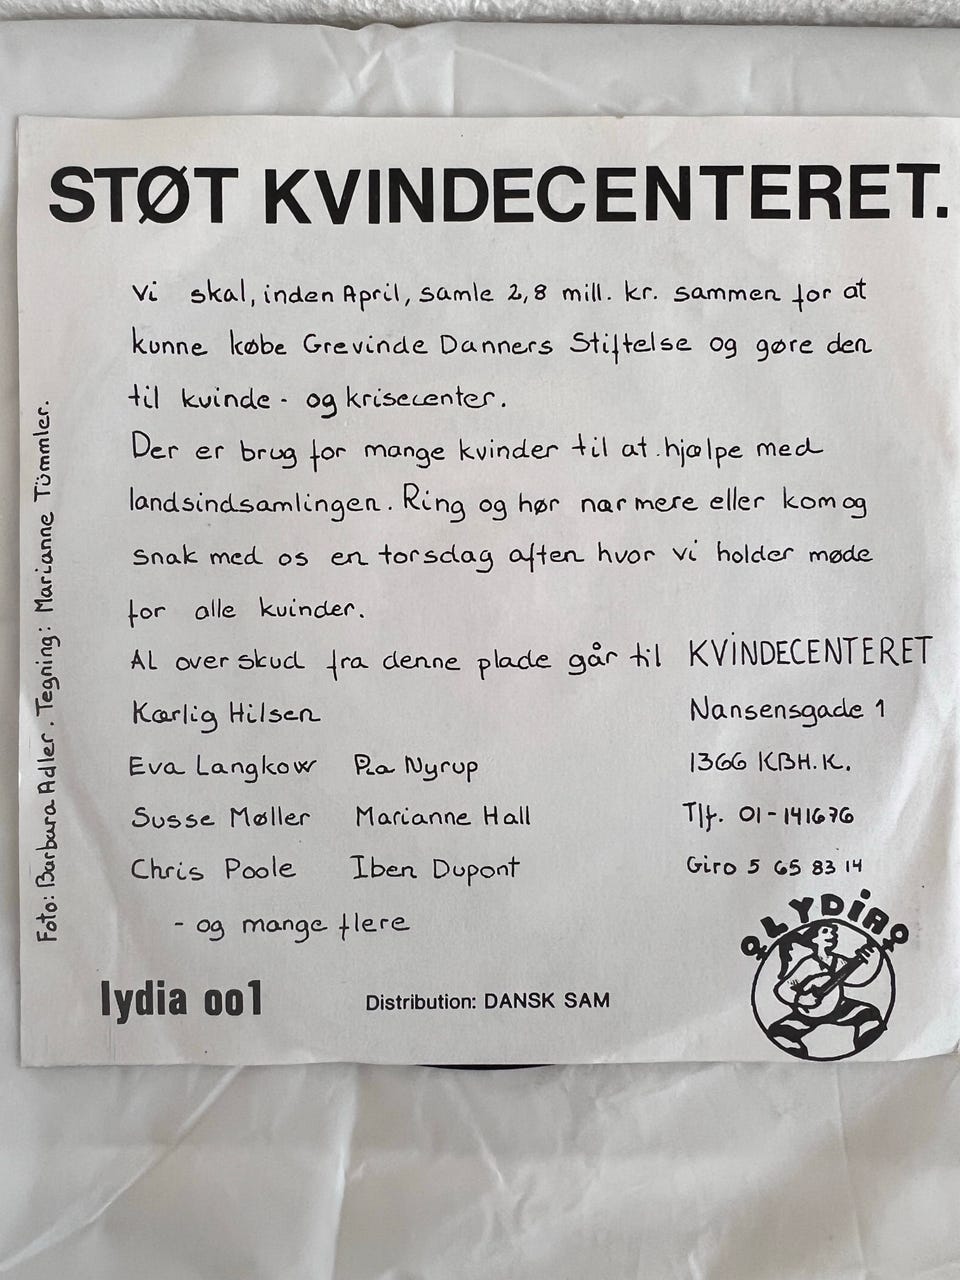 STØT KVINDECENTERET.
Vi skal, inden April, samle 2,8 mill. kr. sammen for at
kunne købe Grevinde Danners Stiftelse og gøre den
til kvinde- og krisecenter.
Der er brug for mange kvinder til at hjælpe med
landsindsamlingen. Ring og hør nærmere eller kom og
snak med os en torsdag aften hvor vi holder møde
for alle kvinder.
Al overskud fra denne plade går til KVINDECENTERET
Kærlig Hilsen Nansensgade 1
Eva Langkow Pia Nyrup 1366 KBH.K.
Susse Møller Marianne Hall Tlf. 01-141676
Chris Poole Iben Dupont Giro 5 65 83 14
- og mange flere
LYDIA
lydia 001 Distribution: DANSK SAM
Foto: Barbara Adler. Tegning: Marianne Tümmler.